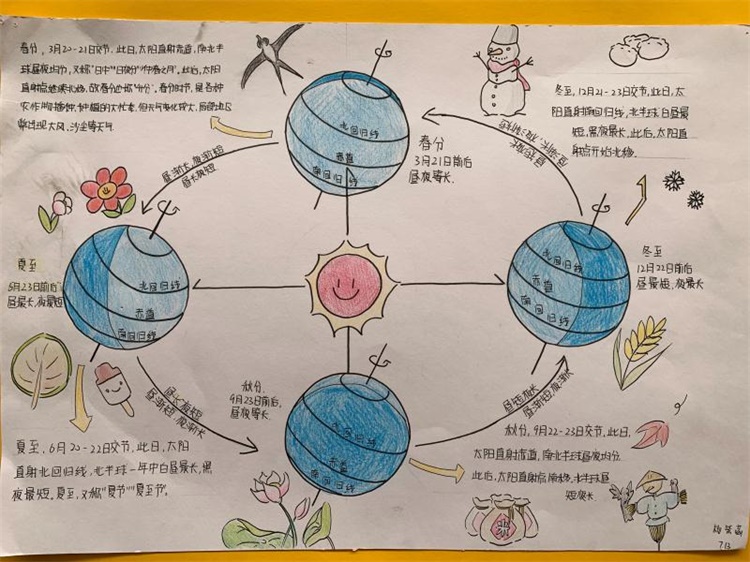 春分，3月20-21日交节，此日，太阳直射赤道，南北半
球昼夜均分，又称"日中""日夜分""仲春之月"。此后，太阳
直射点继续北移，故春分也称"升分"。春分时节，是各种
农作物播种、
常出现大风、沙尘等天气
冬至，12月21-23日交节，此日，太
阳直射南回归线，北半球白昼最
短，黑夜最长，此后，太阳直
射点开始北移。
北回归线
赤道
南回归线
春分
3月21日前后
昼夜等长.
昼渐长，夜渐短
昼长夜短
昼渐长，夜渐短
昼短夜长
夏至
6月23日前后
昼最长，夜最短
北回归线
赤道
南回归线
北回归线
赤道
南回归线
冬至
12月22日前后
昼最短，夜最长
秋分.
9月23日前后，
昼夜等长.
昼长夜短
昼渐短，夜渐长
昼短夜长
昼渐短，夜渐长
北回归线
赤道
南回归线
夏至，6月20-22日交节，此日，太阳
直射北回归线，北半球一年中白昼最长，黑
夜最短，夏至，又称"夏节""夏至节"。
秋分，9月22-23日交节，此日，
太阳直射赤道，南北半球昼夜均分.
此后，太阳直射点南移，北半球昼
短夜长
菜
7班